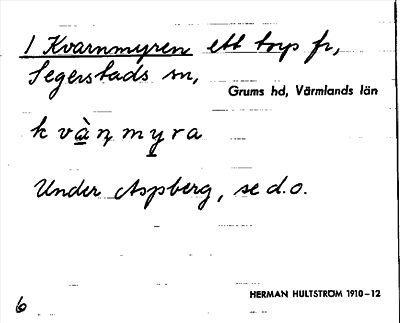 1 Kvarnmyren ett torp fr,
Segerstads sn,
Grums hd, Värmlands län
k v à ṇ m y r a
Under Aspberg, se d.o.
HERMAN HULTSTRÖM 1910–12
6